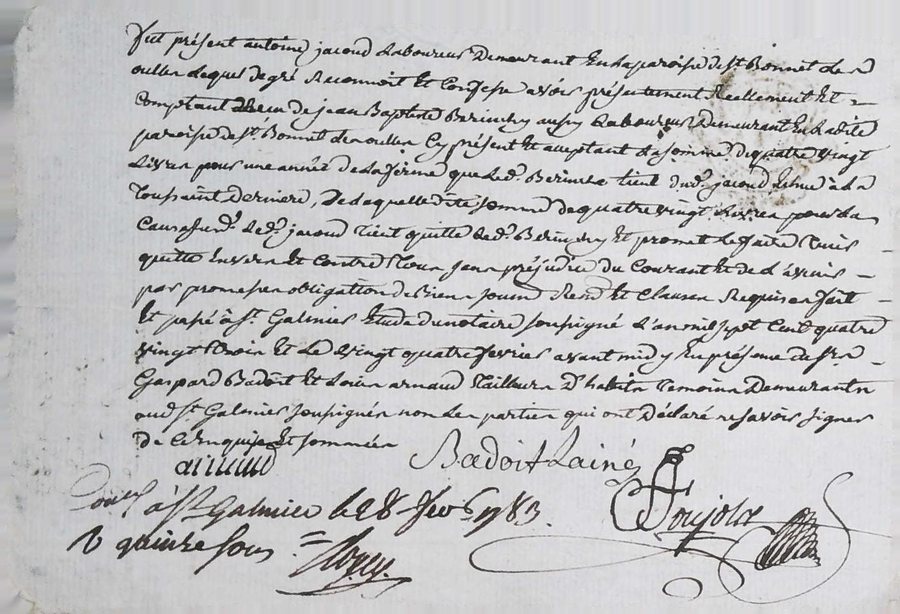 fut présent antoine jacoud Laboureur Demeurant En la paroisse de st Bonnet les
oulles lequel de gré Reconnoit Et Confesse avoir présentement Reellement Et
Comptant de jean Baptiste Berinchy aussy Laboureur Demeurant En Ladite
paroisse de st Bonnet les oulles Cy présent Et acceptant La somme de quatre vingt
Livres pour une année de La ferme que Le d. tient du d. jacoud Echue à La
Toussaint Derniere, De Laquelle dite somme de quatre vingt Livres pour La
Causa sus d. Le d. jacoud tient quitte Le d. Berinchy Et promet Le faire Tenir
quitte Envers Et Contre Tous sans préjudice du Courant Et de L'avenir
par promesses obligation de Biens soum Renon Et Clauses Requises fait
Et passé à st. Galmier Etude du notaire soussigné L'an mil sept Cent quatre
vingt trois Et Le vingt quatre fevrier avant midy En présence de srs
Gaspard Badoit Et Louis arnaud Tailleurs D'habits Temoins Demeurants
aud. st. Galmier soussignés non Les parties qui ont Déclaré ne savoir signer
de Ce Enquises Et sommées
arnaud Badoit Lainé
Pujolas
à st Galmier le 28 fev. 1783.
R quinze sous